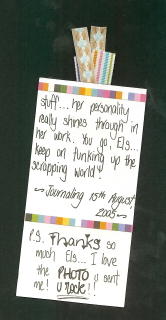 stuff... her personality
really shines through in
her work. You go, Els...
keep on funking up the
scrapping world!
~ Journaling 15th August
2005 ~
P.S. Thanks so
much Els... I love
the PHOTO u sent
me! U rock!!